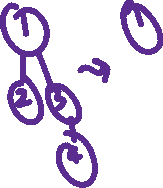 1 1
2 3
4